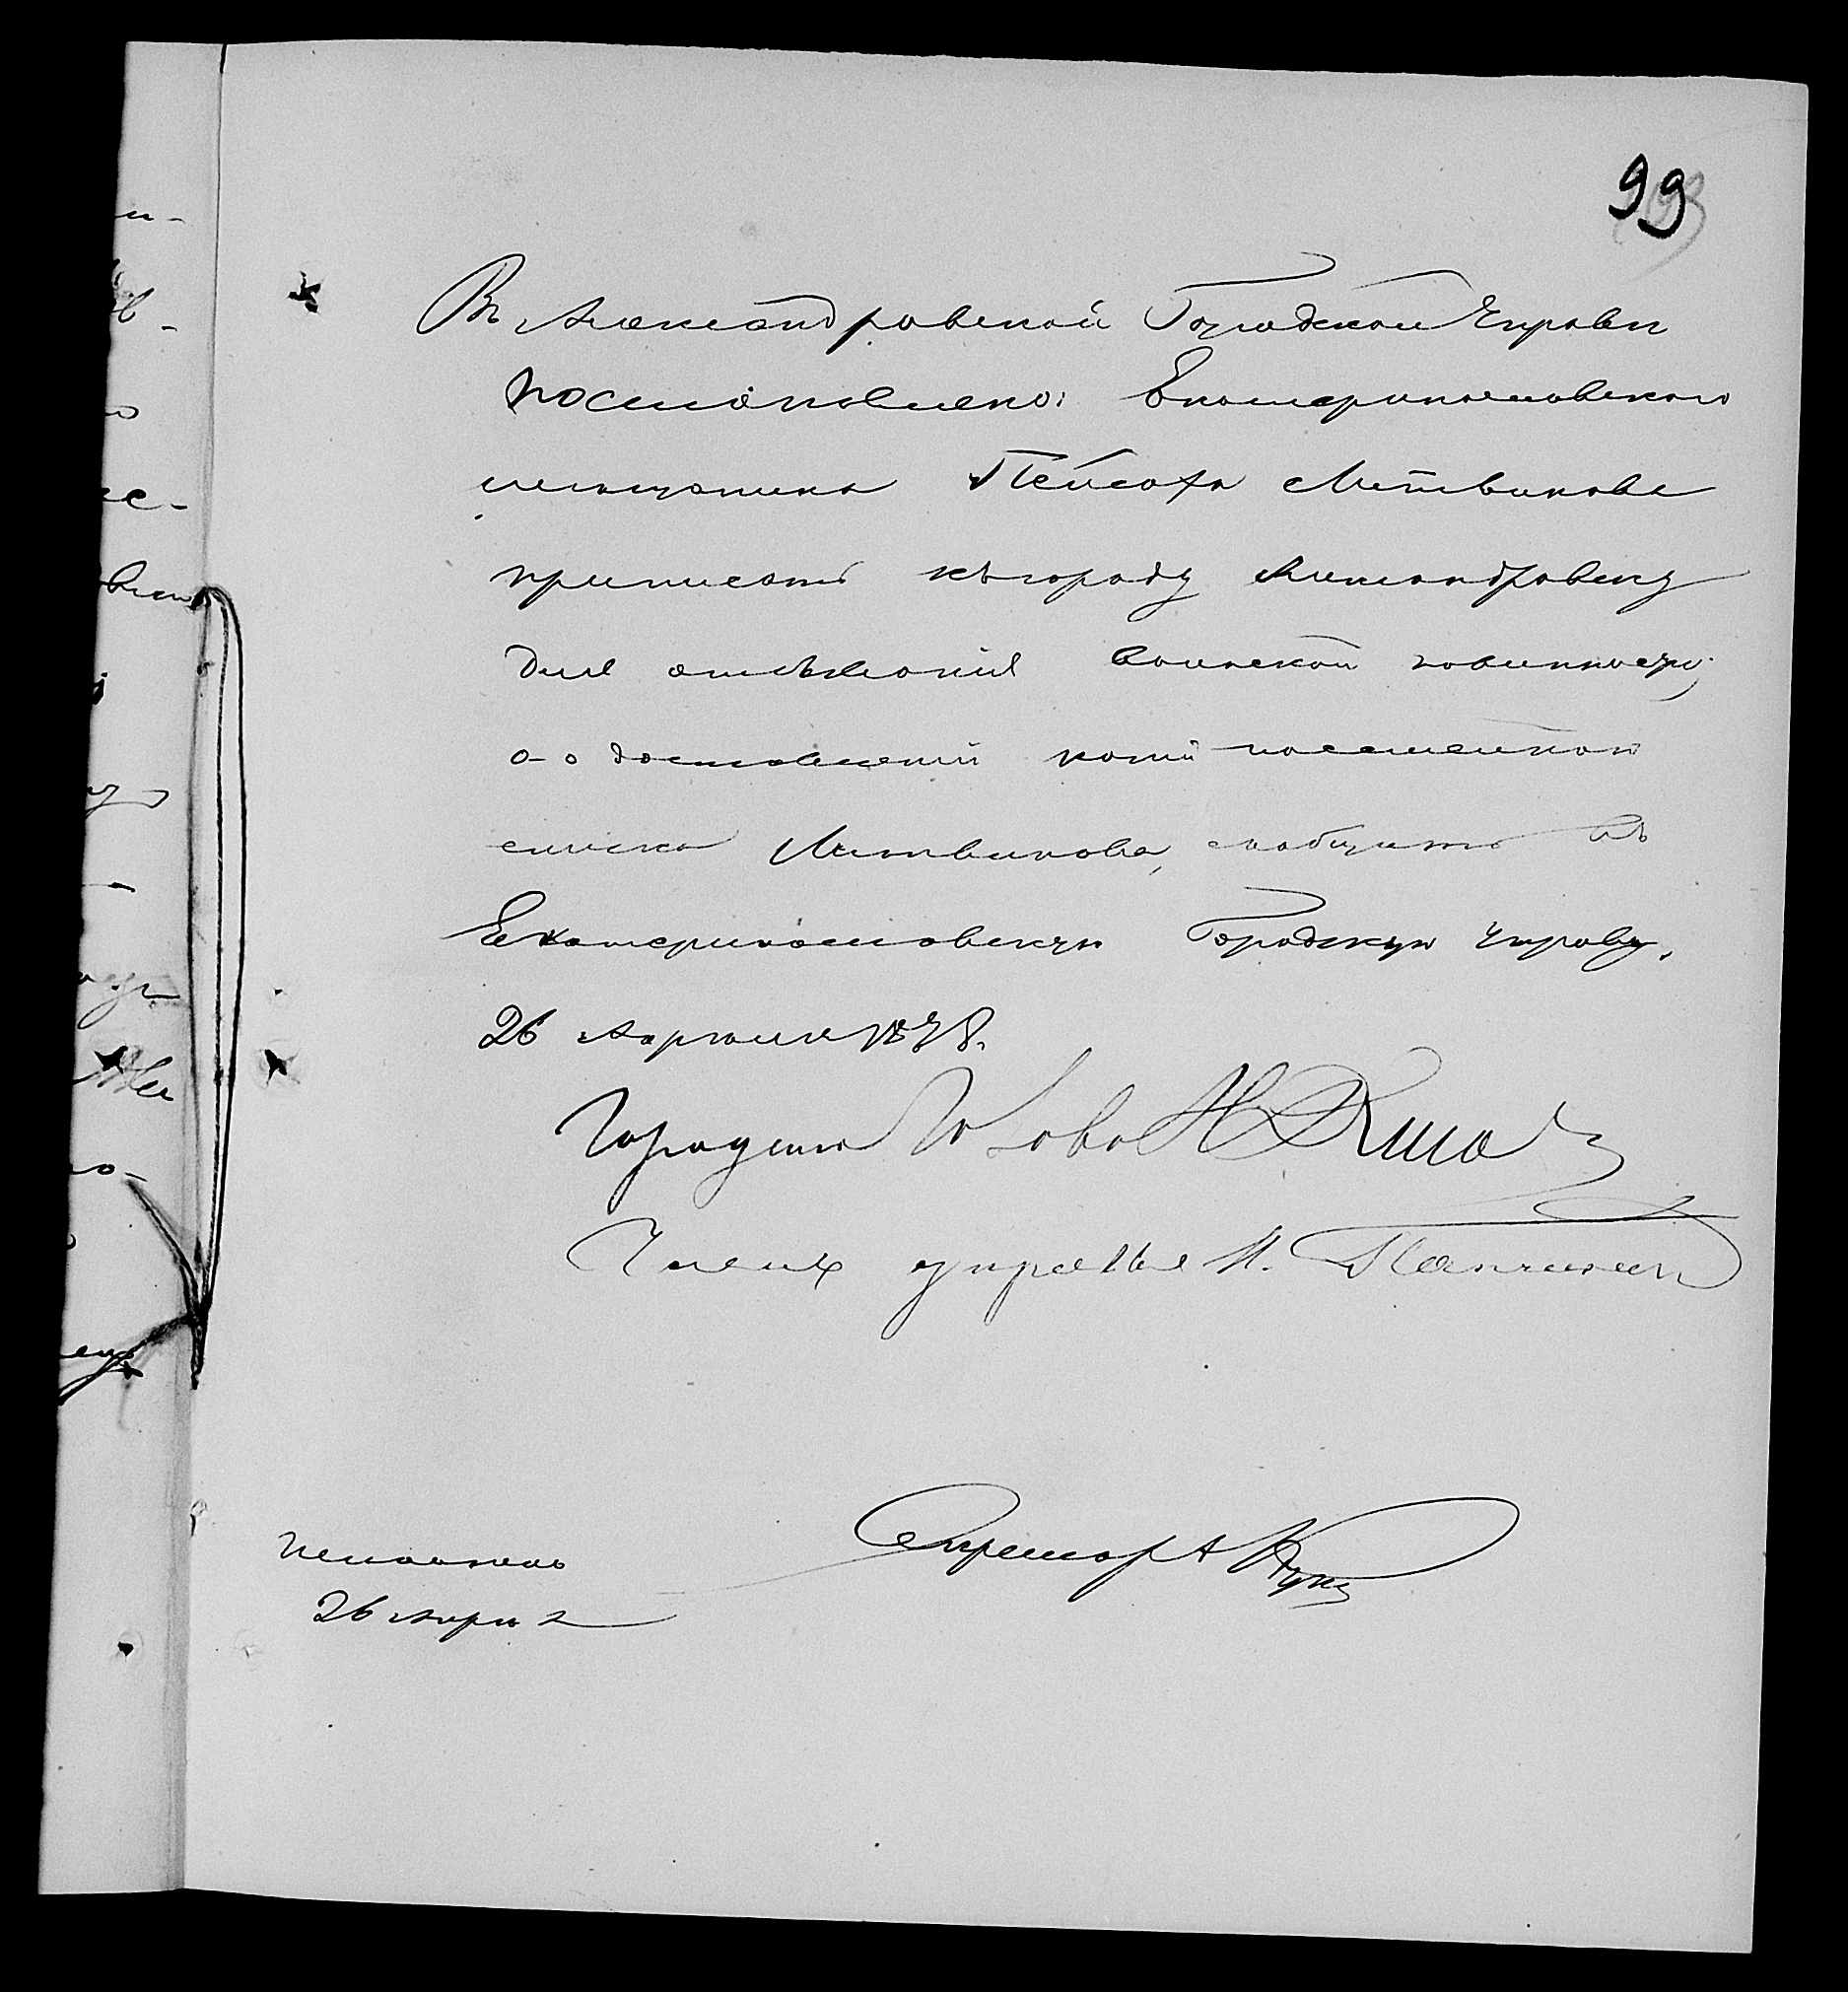 99
Въ Александровской Городской Управѣ
постановлено: Екатеринославскаго
мещанина Пейсаха Литвинова
приписать къ городу Александровску
для отбыванія воинской повинности;
а о доставленіи копіи посемейнаго
списка Литвинова, сообщить въ
Екатеринославскую Городскую Управу.
26 Апреля 1878.
Городской Голова Н.
Членъ управы И.
Секретарь А
Исполнено
26 Апрѣля